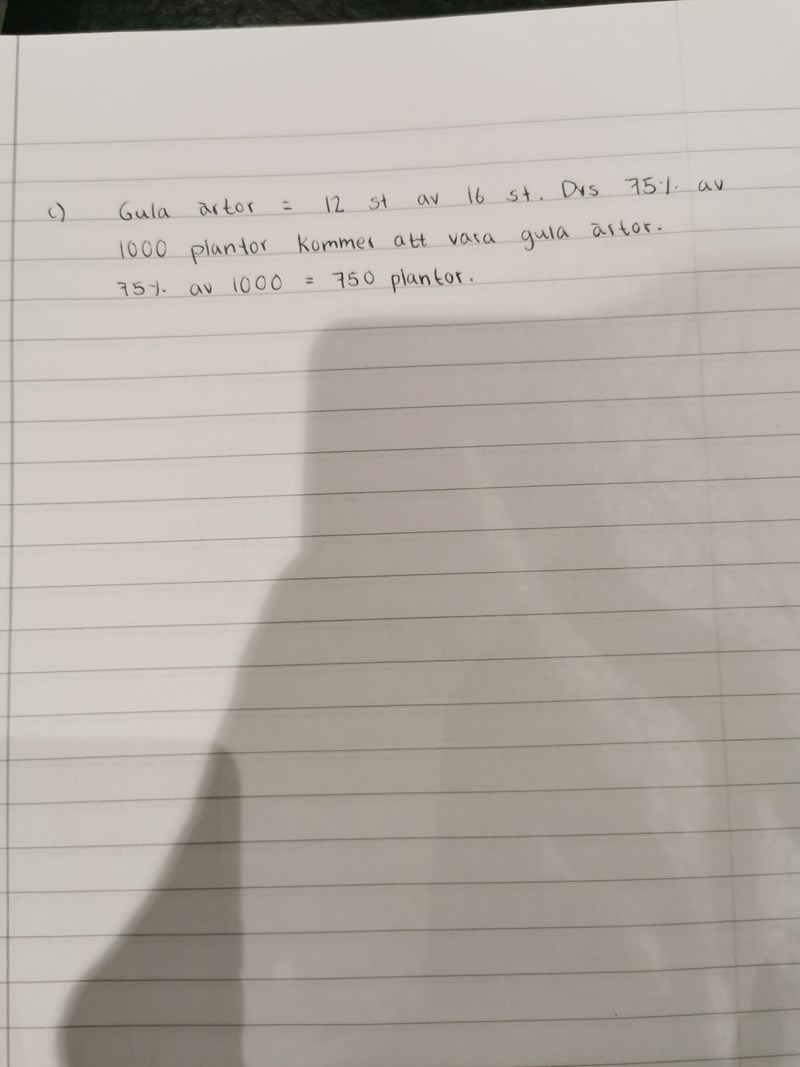 c) Gula ärtor = 12 st av 16 st. Dvs 75% av
1000 plantor kommer att vara gula ärtor.
75% av 1000 = 750 plantor.